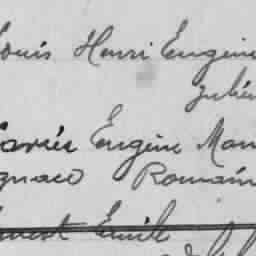 Louis Henri Eugène
Julie
Eugène Mar
Ignace Romain
Ernest Emile